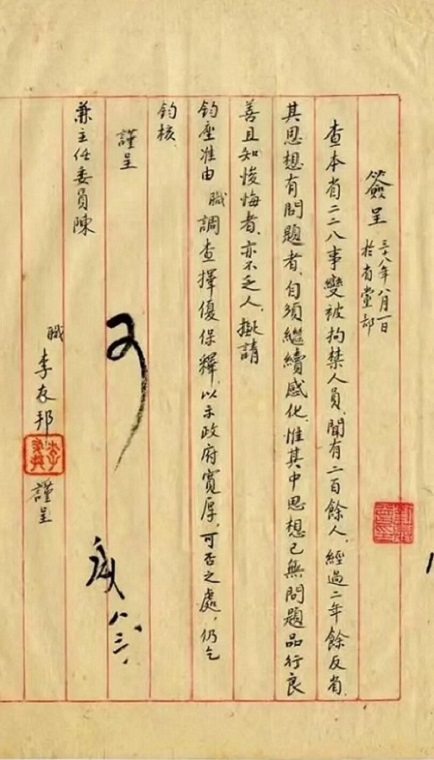 簽呈 三十八年八月一日 於省黨部
查本省二二八事變被拘禁人員，聞有二百餘人，經過二年餘反省，
其思想有問題者，自須繼續感化，惟其中思想已無問題品行良
善且知悛悔者，亦不乏人，擬請
鈞座准由 職調查擇優保釋，以示政府寬厚，可否之處，仍乞
鈞核
謹呈
兼主任委員陳
職 李友邦 謹呈
可
八、三、